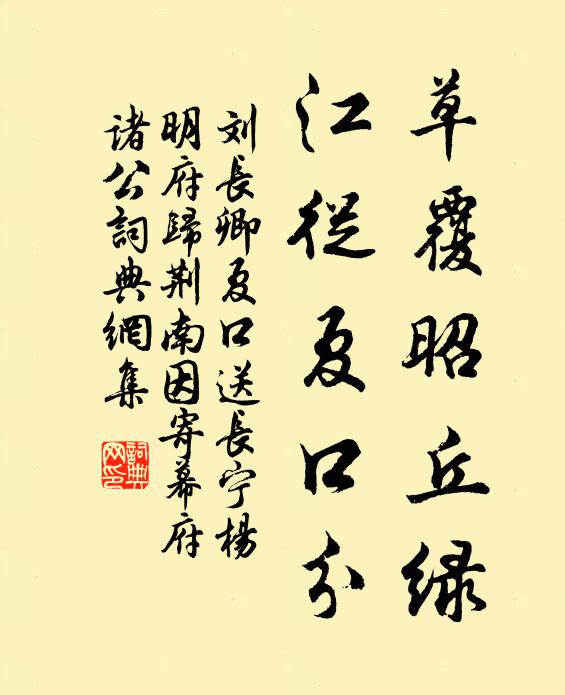 草覆昭丘绿
江從夏口分
刘長卿夏口送長宁楊
明府歸荆南因寄幕府
诸公詞典網集
詞典
网印